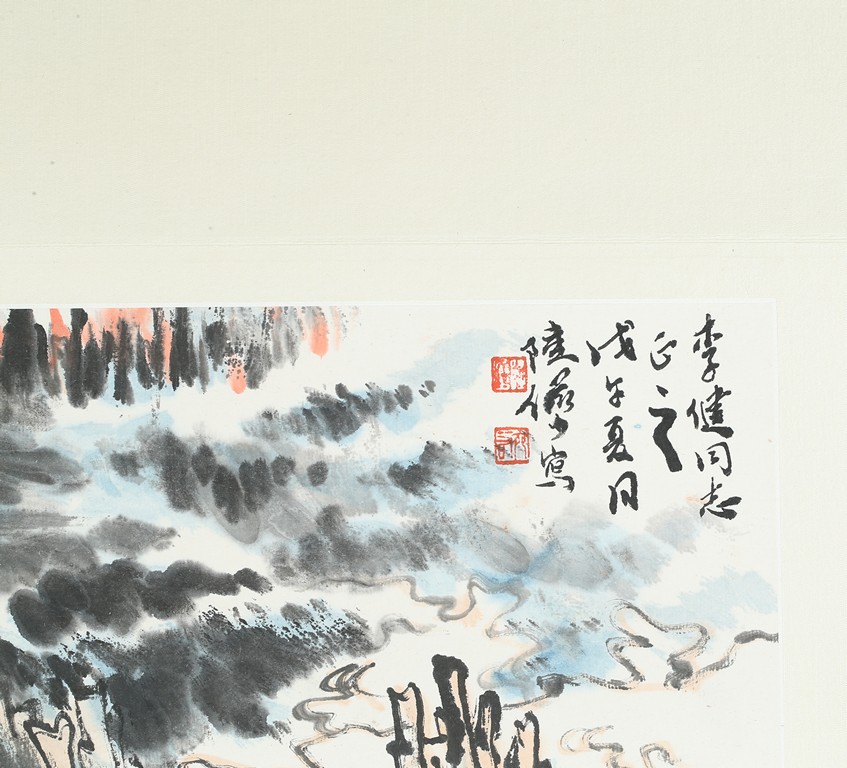 李健同志
正之
戊午夏日
陸儼少寫